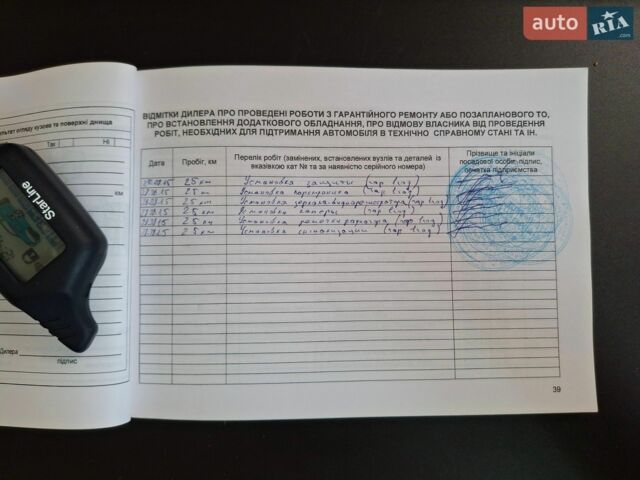 auto RIA .com
ультат огляду кузова та поверхні днища
Так Ні
км
StarLine
Дилера
підпис
ВІДМІТКИ ДИЛЕРА ПРО ПРОВЕДЕНІ РОБОТИ З ГАРАНТІЙНОГО РЕМОНТУ АБО ПОЗАПЛАНОВОГО ТО,
ПРО ВСТАНОВЛЕННЯ ДОДАТКОВОГО ОБЛАДНАННЯ, ПРО ВІДМОВУ ВЛАСНИКА ВІД ПРОВЕДЕННЯ
РОБІТ, НЕОБХІДНИХ ДЛЯ ПІДТРИМАННЯ АВТОМОБІЛЯ В ТЕХНІЧНО СПРАВНОМУ СТАНІ ТА ІН.
Дата
Пробіг, км
Перелік робіт (замінених, встановлених вузлів та деталей із
вказівкою кат № та за наявністю серійного номера)
Прізвище та ініціали
посадової особи, підпис,
печатка підприємства
25 км Установка защиты (гар 1год)
25 Установка (гар 1год)
25 км Установка (гар 1год)
25 км Установка камеры (гар 1год)
25 км Установка (гар 1год)
25 км Установка сигнализации (гар 1год)
39